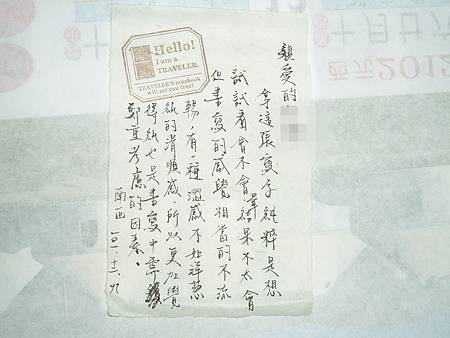 Hello!
I am a
TRAVELER.
TRAVELER'S notebook
will set you free!
親愛的
拿這張寫字純粹是想
試試看會不會暈,結果不太會
但書寫的感覺相當的不流
暢,有一種澀感不如
紙的滑順感,所以更加覺
得紙也是書寫中需
鄭重考慮的因素。
南西
西元2012
十月廿六